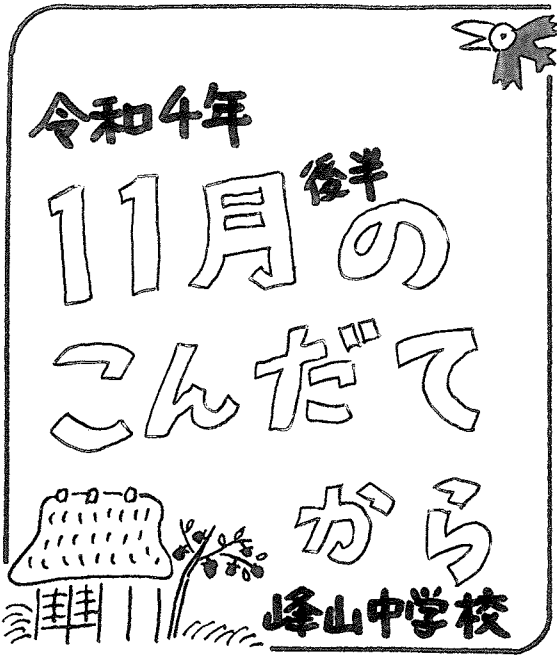 令和4年
11月後半の
こんだて
から
峰山中学校